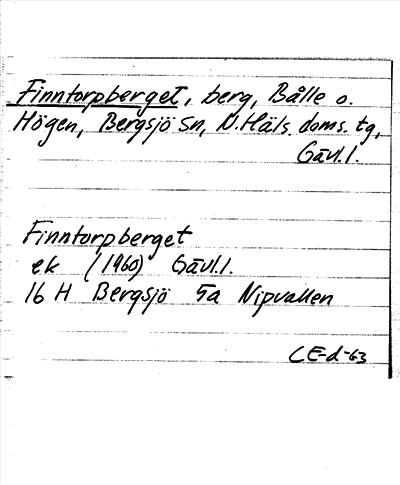 Finntorpberget, berg, Bålle o.
Högen, Bergsjö sn, N. Häls. doms. tg,
Gävl. l.
Finntorpberget
ek (1960) Gävl. l.
16 H Bergsjö 5a Nipvallen
CE-d-63